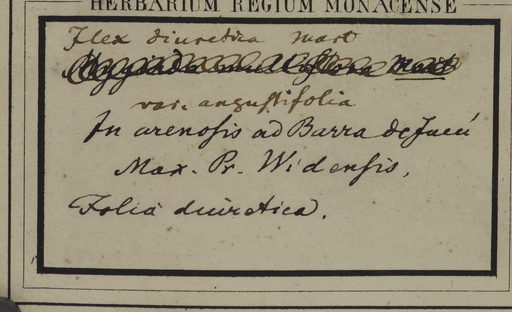 HERBARIUM REGIUM MONACENSE
Ilex diuretica Mart
multiflora Mart
var. angustifolia
In arenosis ad Barra de Jucú
Max. Pr. Widensis.
Folia diuretica.